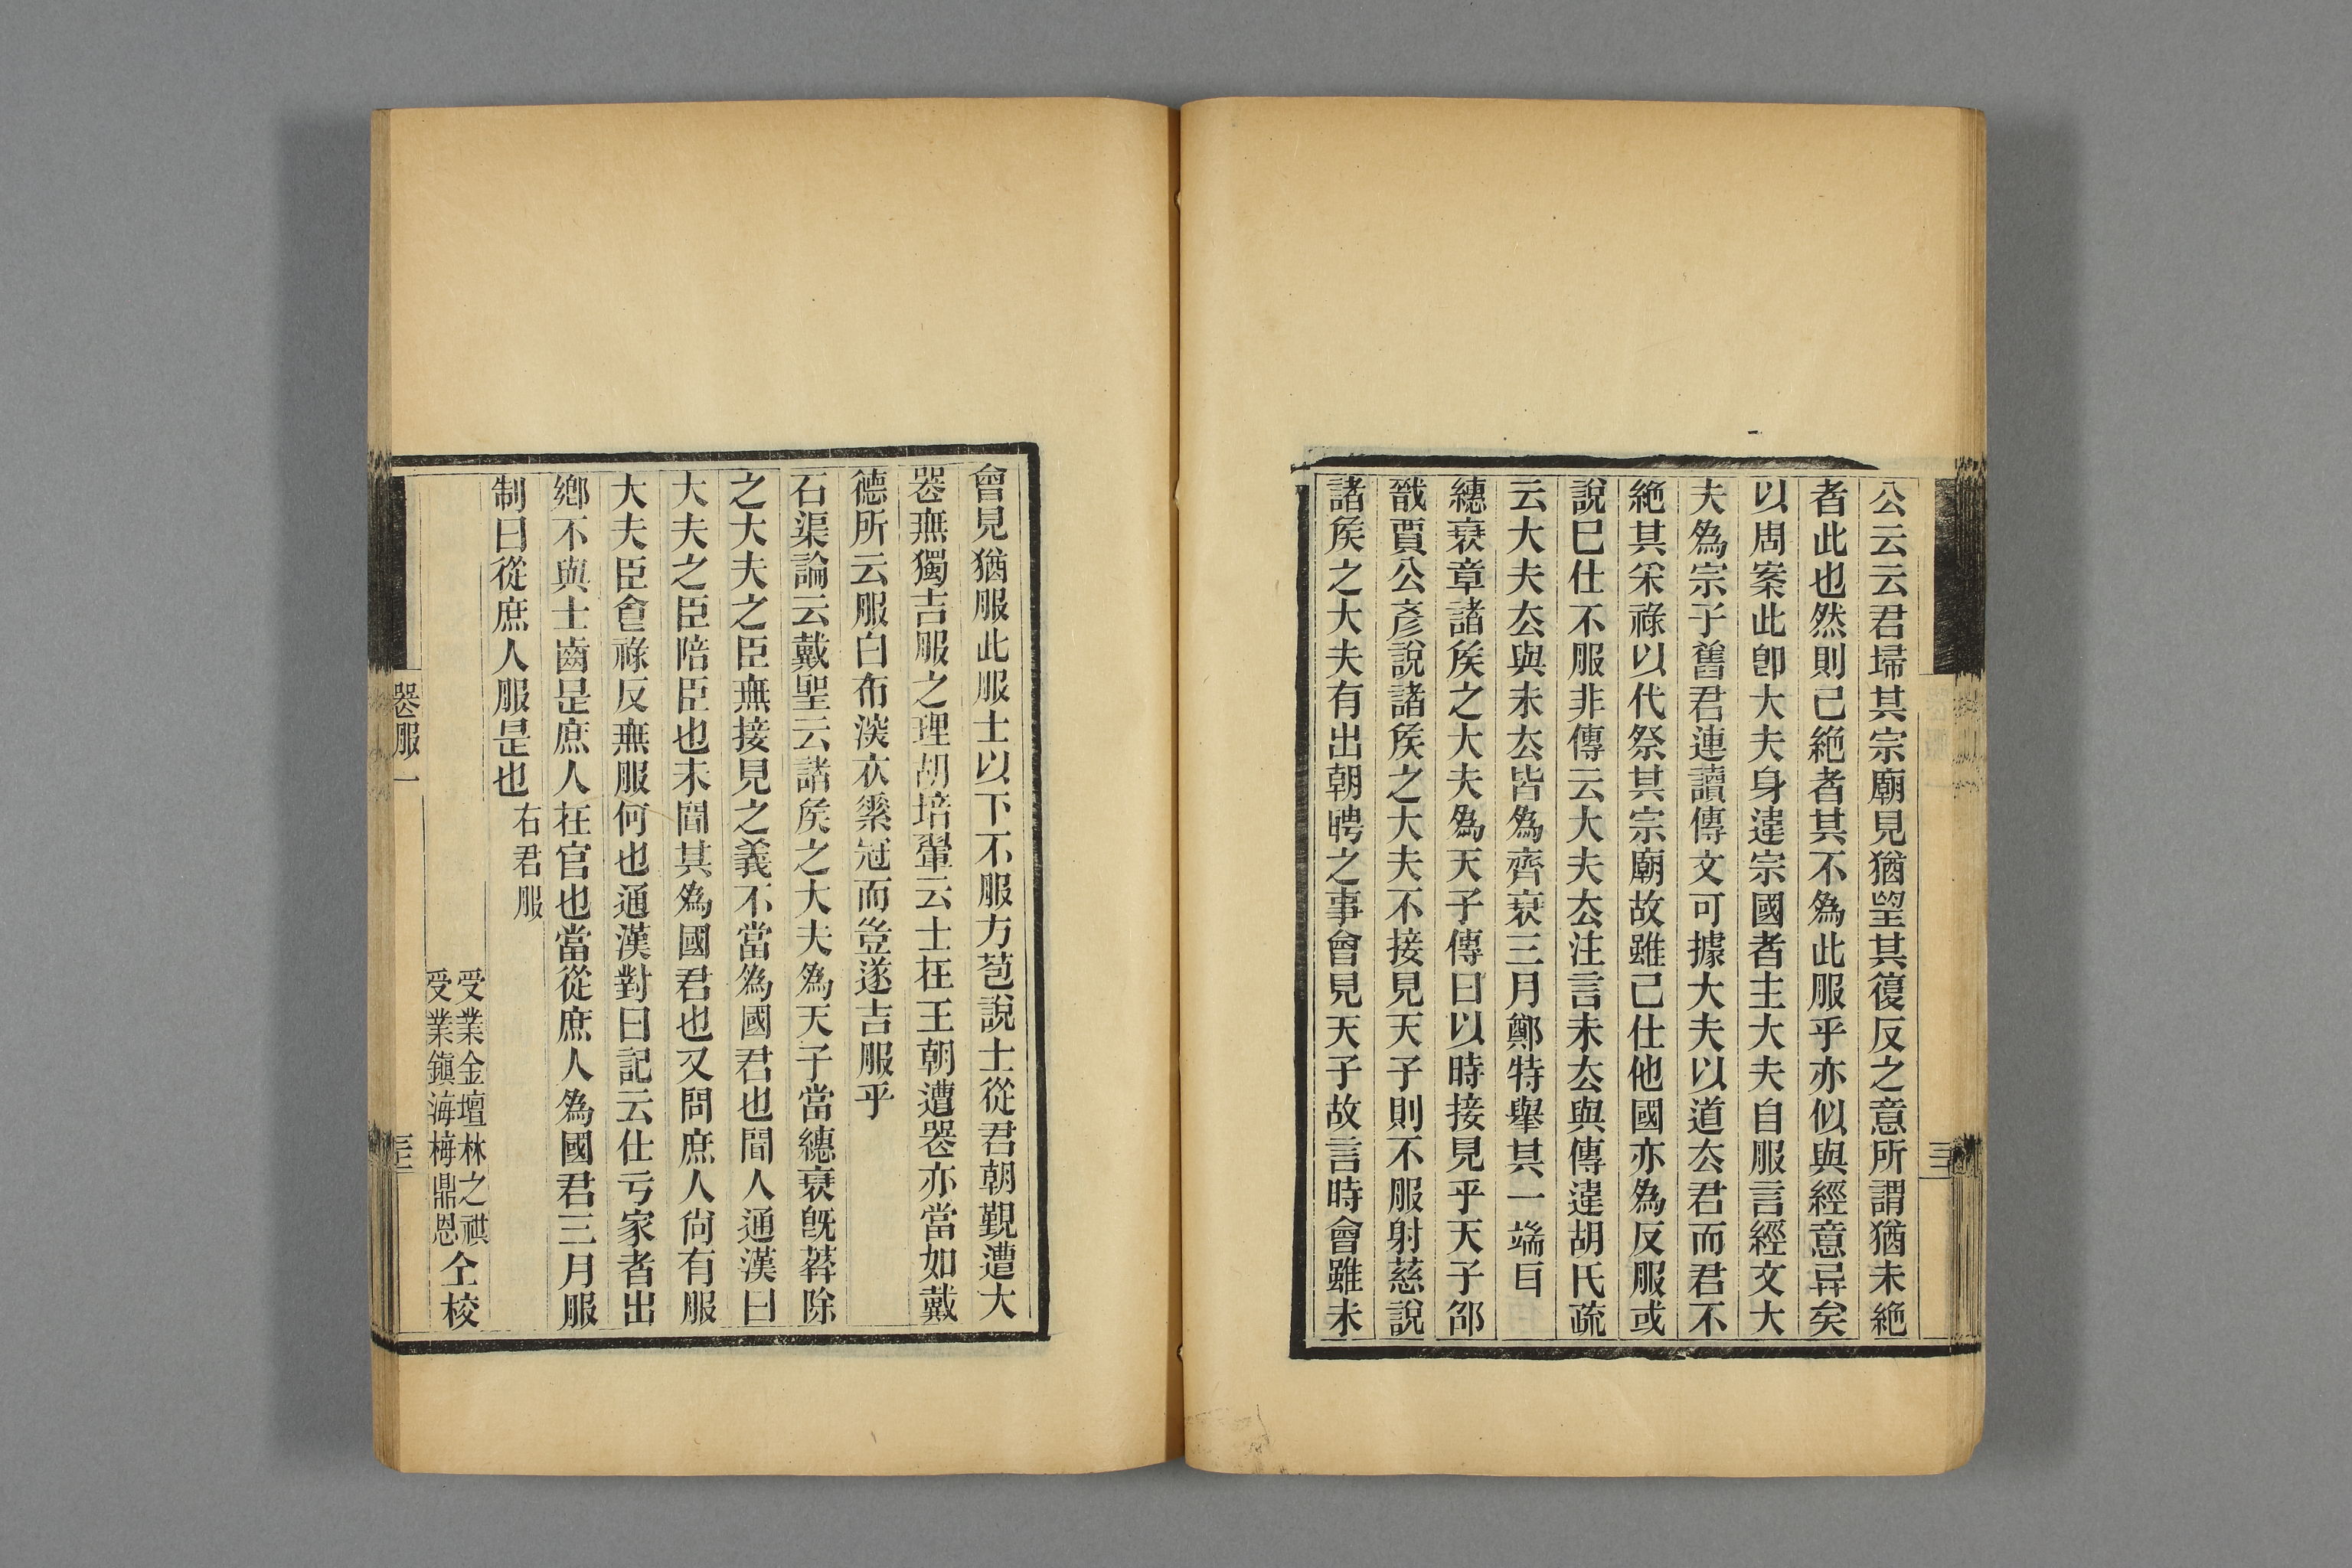 公云云君埽其宗廟見猶朢其復反之意所謂猶未絶
者此也然則已絶者其不爲此服乎亦似與經意异矣
以周案此卽大夫身違宗國者主大夫自服言經文大
夫爲宗子舊君連讀傳文可據大夫以道厺君而君不
絶其采祿以代祭其宗廟故雖已仕他國亦爲反服或
說巳仕不服非傳云大夫厺注言未厺與傳違胡氏疏
云大夫厺與未厺皆爲齊衰三月鄭特舉其一端百
繐衰章諸矦之大夫爲天子傳曰以時接見乎天子郃
戠賈公彥說諸矦之大夫不接見天子則不服射慈說
諸矦之大夫有出朝聘之事會見天子故言時會雖未
會見猶服此服士以下不服方苞說士從君朝覲遭大
喪無獨吉服之理胡培翬云士在王朝遭喪亦當如戴
德所云服白布深衣素冠而豈遂吉服乎
石渠論云戴聖云諸矦之大夫爲天子當繐衰旣葬除
之大夫之臣無接見之義不當爲國君也聞人通漢曰
大夫之臣陪臣也未聞其爲國君也又問庶人尙有服
大夫臣食祿反無服何也通漢對曰記云仕亏家者出
鄉不與士齒是庶人在官也當從庶人爲國君三月服
制曰從庶人服是也 右君服
受業金壇林之祺
受業鎭海梅鼎恩 仝校
喪服一
三三